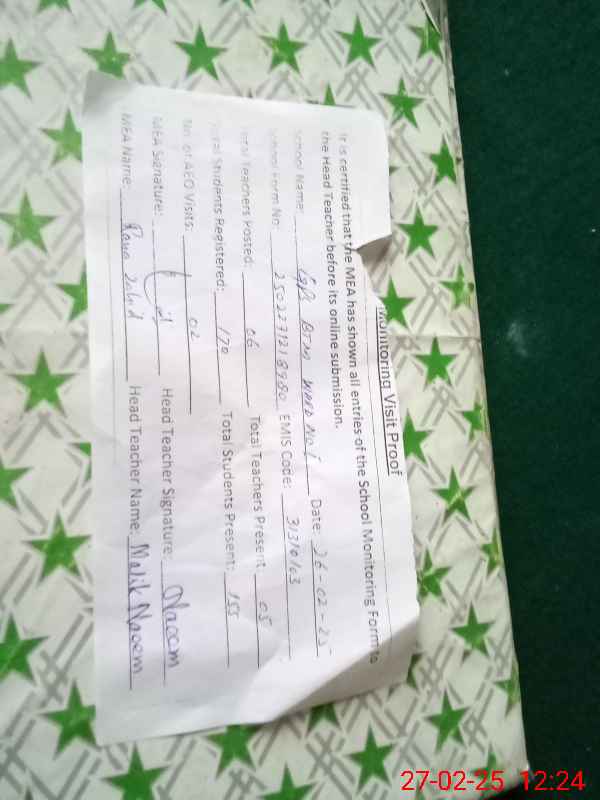 Monitoring Visit Proof
It is certified that the MEA has shown all entries of the School Monitoring Form to
the Head Teacher before its online submission.
School Name: WARD NO 1 Date: 26-02-25
School Form No: EMIS Code: 31310163
Total Teachers Posted: 06 Total Teachers Present 05
Total Students Registered: 170 Total Students Present: 155
No. of AEO Visits: 02
MEA Signature: Head Teacher Signature: Naeem
MEA Name: Rana Zahid Head Teacher Name: Malik Naeem
27-02-25 12:24